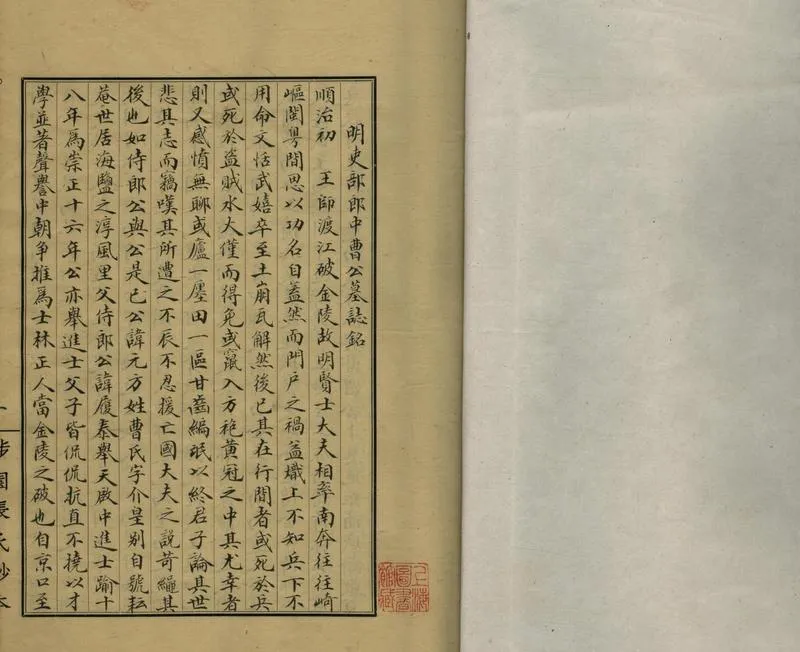 明吏部郎中曹公墓誌銘
順治初　王師渡江破金陵故明賢士大夫相率南奔往往崎
嶇閩粤間思以功名自蓋然而門戸之禍益熾上不知兵下不
用命文恬武嬉卒至土崩瓦解然後已其在行間者或死於兵
或死於盗賊水火僅而得免或竄入方袍黄冠之中其尤幸者
則又感憤無聊或廬一廛田一區甘齒編氓以終君子論其世
悲其志而竊嘆其所遭之不辰不忍援亡國大夫之説苛繩其
後也如侍郎公與公是已公諱元方姓曹氏字介皇别自號耘
菴世居海鹽之淳風里父侍郎公諱履泰舉天啟中進士踰十
八年為崇正十六年公亦舉進士父子皆侃侃抗直不撓以才
學並著聲譽中朝争推為士林正人當金陵之破也自京口至
一
步園長氏鈔本
上海圖書館藏